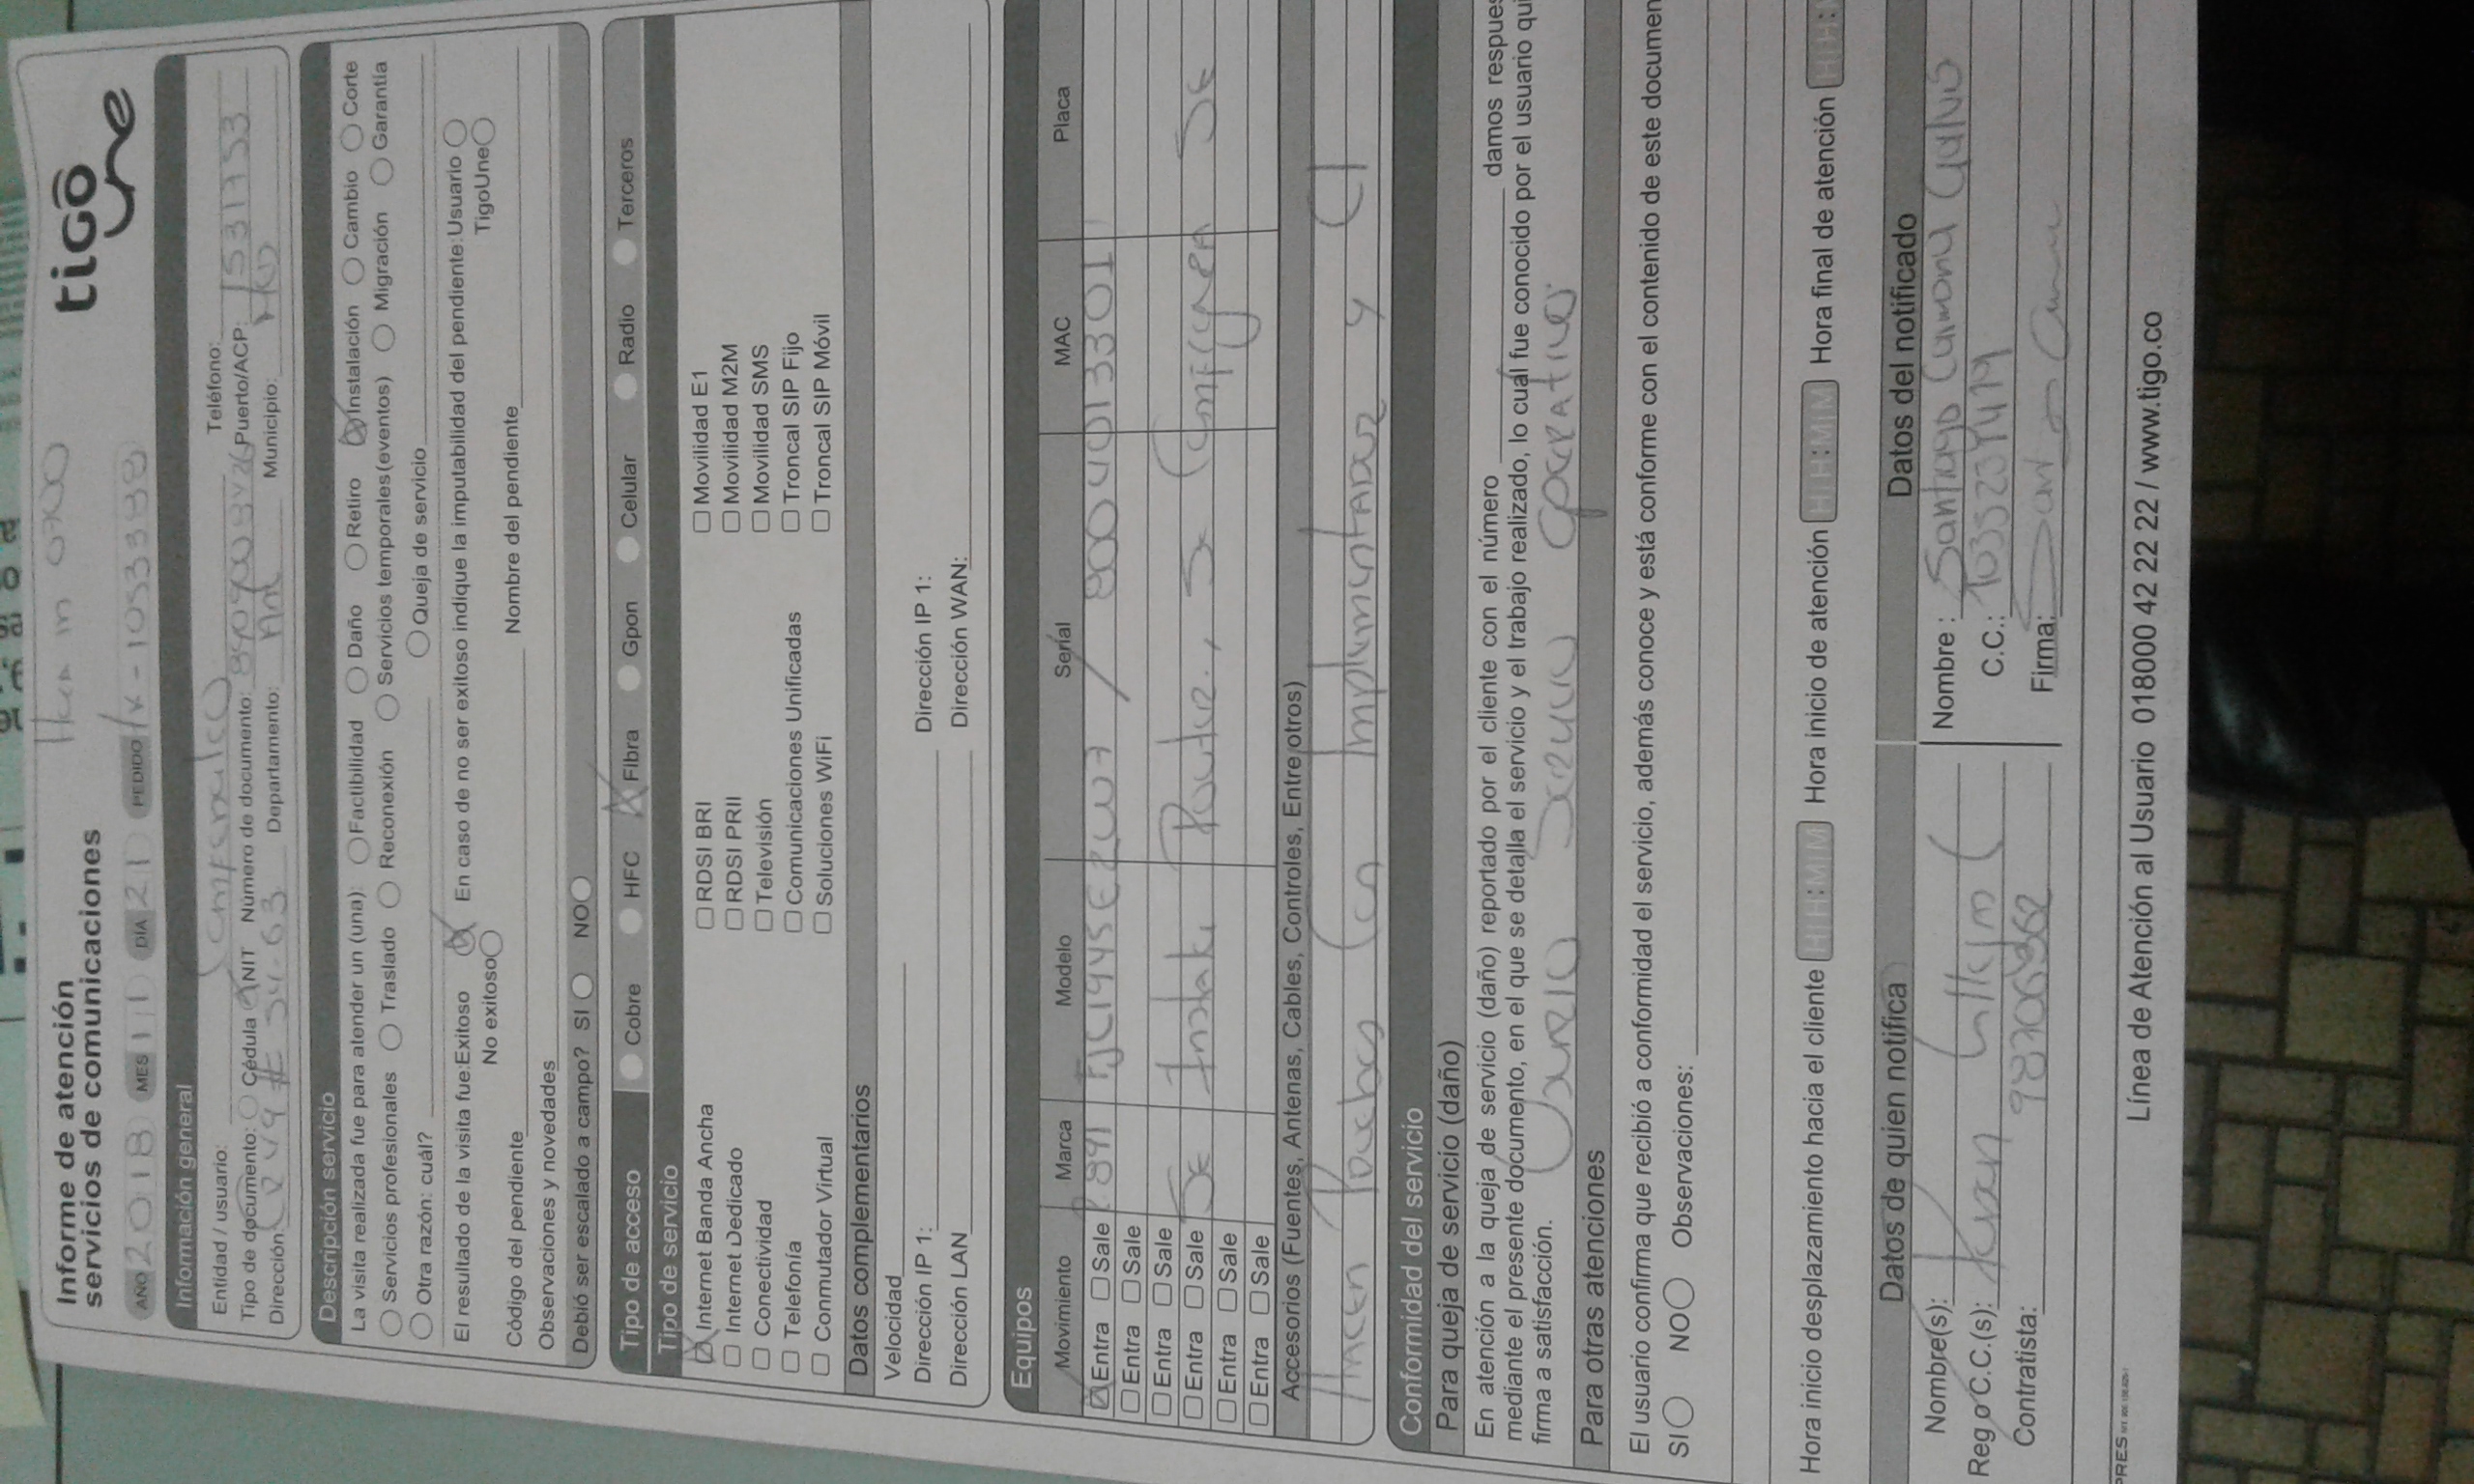 Informe de atención
servicios de comunicaciones
tigo
une
AÑO 2018 MES 11 DÍA 21 PEDIDO
Información general
Entidad / usuario: Teléfono:
Tipo de documento: Cédula NIT Número de documento: Puerto/ACP: 1531753
Dirección: CR 49 # 54-63 Departamento: Ant Municipio:
Descripción servicio
La visita realizada fue para atender un (una): Factibilidad Daño Retiro Instalación Cambio Corte
Servicios profesionales Traslado Reconexión Servicios temporales(eventos) Migración Garantía
Otra razón: cuál? Queja de servicio
El resultado de la visita fue:Exitoso En caso de no ser exitoso indique la imputabilidad del pendiente:Usuario
No exitoso TigoUne
Código del pendiente Nombre del pendiente
Observaciones y novedades
Debió ser escalado a campo? SI NO
Tipo de acceso Cobre HFC Fibra Gpon Celular Radio Terceros
Tipo de servicio
Internet Banda Ancha RDSI BRI Movilidad E1
Internet Dedicado RDSI PRII Movilidad M2M
Conectividad Televisión Movilidad SMS
Telefonía Comunicaciones Unificadas Troncal SIP Fijo
Conmutador Virtual Soluciones WiFi Troncal SIP Móvil
Datos complementarios
Velocidad
Dirección IP 1: Dirección IP 1:
Dirección LAN Dirección WAN:
Equipos
Movimiento Marca Modelo Serial MAC Placa
Entra Sale 891 FJC1945E2W7 / 8004013301
Entra Sale
Entra Sale
Entra Sale Se Instala Router, Se Configura Se
Entra Sale
Entra Sale
Accesorios (Fuentes, Antenas, Cables, Controles, Entre otros)
Hacen Pruebas Con Implementador y Cl
Conformidad del servicio
Para queja de servicio (daño)
En atención a la queja de servicio (daño) reportado por el cliente con el número damos respues
mediante el presente documento, en el que se detalla el servicio y el trabajo realizado, lo cual fue conocido por el usuario qui
firma a satisfacción. Usuario Servicio Operativo
Para otras atenciones
El usuario confirma que recibió a conformidad el servicio, además conoce y está conforme con el contenido de este documen
SI NO Observaciones:
Hora inicio desplazamiento hacia el cliente HH:MM Hora inicio de atención HH:MM Hora final de atención HH:
Datos de quien notifica Datos del notificado
Nombre(s): Nombre : Santiago Carmona
Reg o C.C.(s): C.C.: 
Contratista: 98706362 Firma:
PRES
Línea de Atención al Usuario 018000 42 22 22 / www.tigo.co